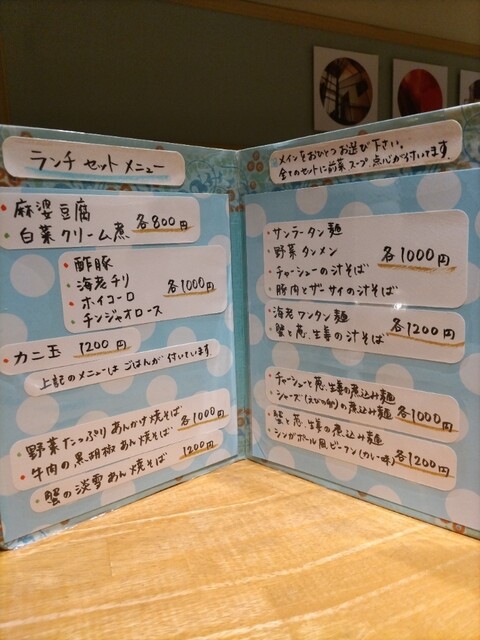 ランチセットメニュー
麻婆豆腐
白菜クリーム煮 各800円
酢豚
海老チリ
ホイコーロ
チンジャオロース
各1000円
カニ玉 1200円
上記のメニューはごはんが付いています。
野菜たっぷりあんかけ焼そば
牛肉の黒胡椒あん焼そば
各1000円
蟹の淡雪あん焼そば 1200円
メインをおひとつお選び下さい。
全てのセットに前菜 スープ 点心が付いてます。
サンラータン麺
野菜タンメン
チャーシューの汁そば
豚肉とザーサイの汁そば
各1000円
海老ワンタン麺
蟹と葱、生姜の汁そば
各1200円
チャーシューと葱、生姜の煮込み麺
シャーズ(えびの卵)の煮込み麺 各1000円
蟹と葱、生姜の煮込み麺
シンガポール風ビーフン(カレー味) 各1200円